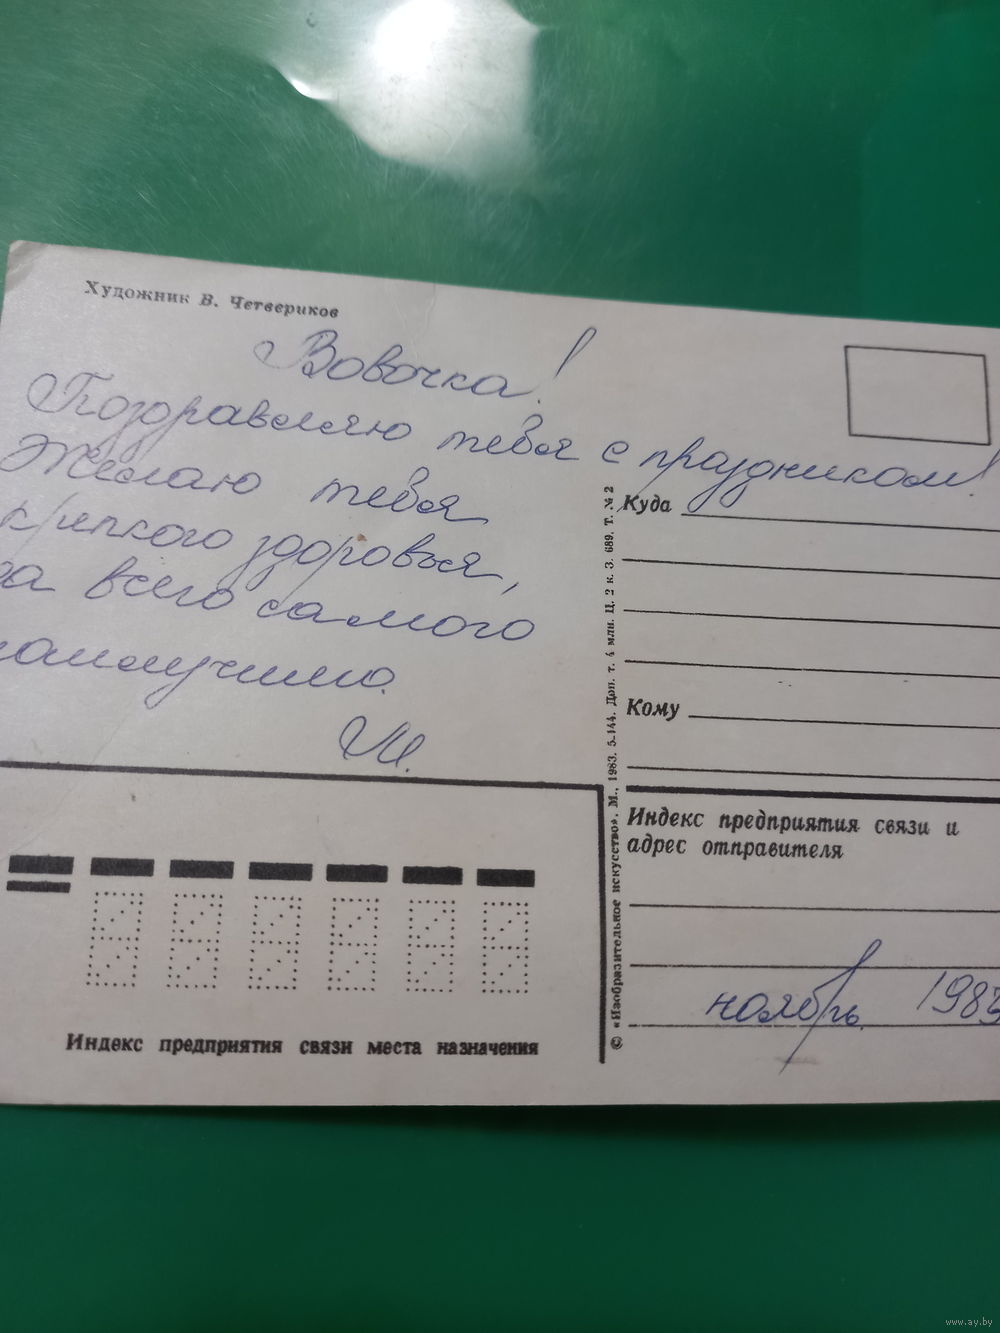 Художник В. Четвериков
Вовочка!
Поздравляю тебя с праздником!
Желаю тебя
крепкого здоровья,
да всего самого
наилучшего.
И.
Куда
Кому
Индекс предприятия связи и
адрес отправителя
ноябрь 1983
© «Изобразительное искусство». М., 1983. 5-144. Доп. т. 4 млн. Ц. 2 к. З. 689. Т. № 2
Индекс предприятия связи места назначения
www.ay.by